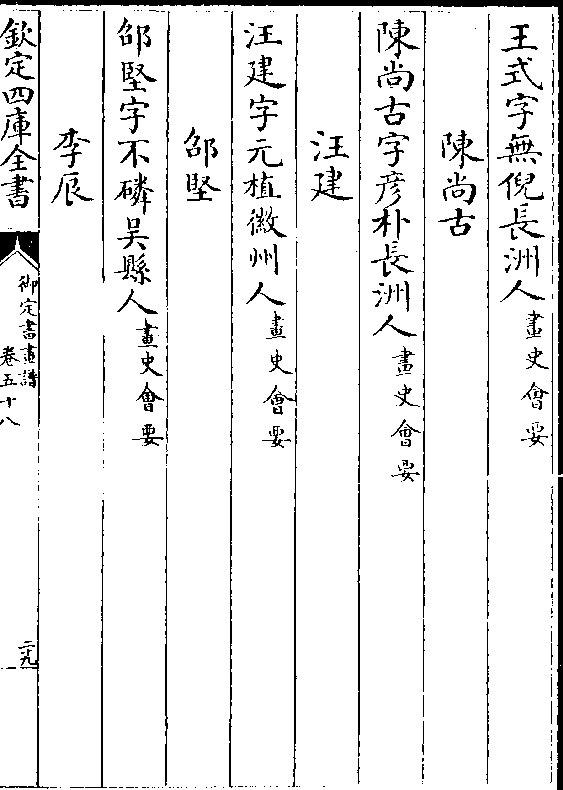 王式字無倪長洲人畫史會要
陳尚古
陳尚古字彦朴長洲人畫史會要
汪建
汪建字元植徽州人畫史會要
邵堅
邵堅字不磷吴縣人畫史會要
李辰
欽定四庫全書
御定書畫譜
卷五十八
二十九